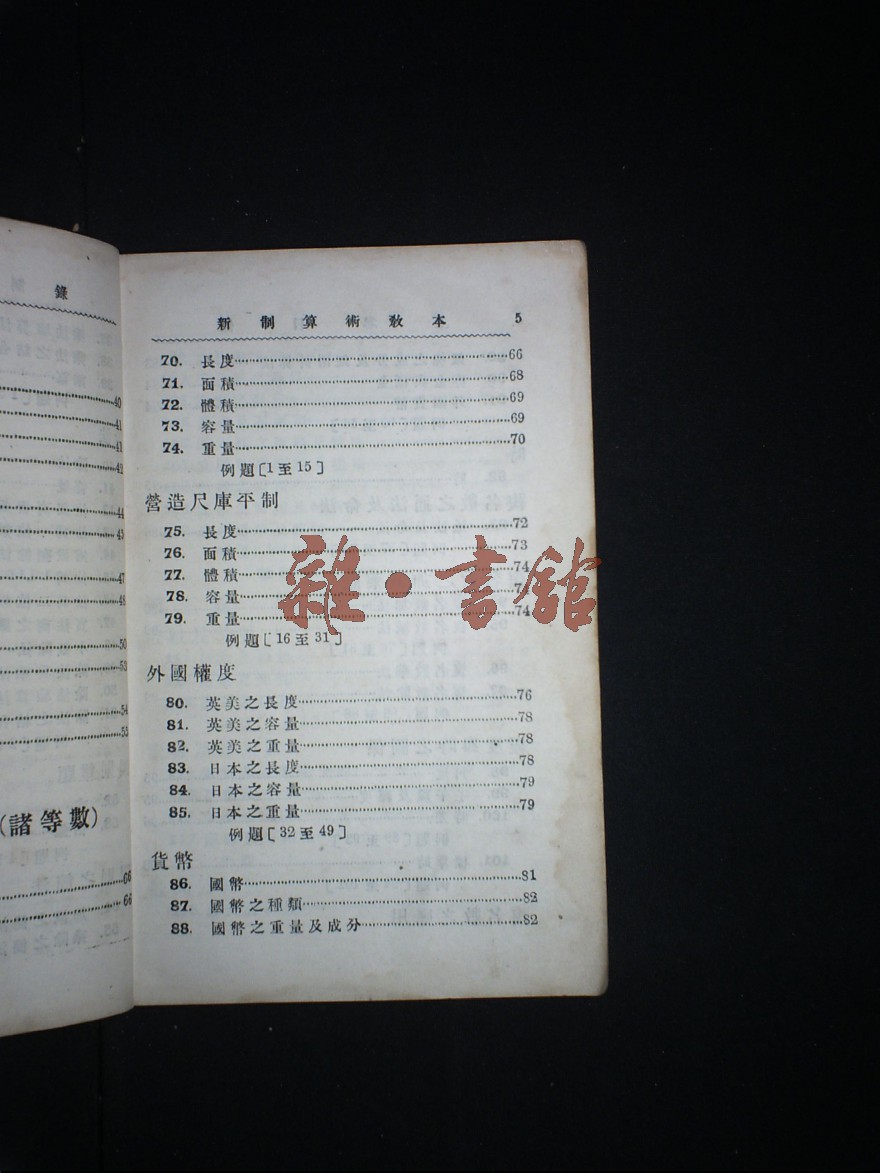 錄
40
41
41
42
44
45
47
48
50
53
54
55
(諸等數)
66
66
新制算術教本 5
70. 長度 66
71. 面積 68
72. 體積 69
73. 容量 69
74. 重量 70
例題[1至15]
營造尺庫平制
75. 長度 72
76. 面積 73
77. 體積 74
78. 容量 7
79. 重量 74
例題[16至31]
外國權度
80. 英美之長度 76
81. 英美之容量 78
82. 英美之重量 78
83. 日本之長度 78
84. 日本之容量 79
85. 日本之重量 79
例題[32至49]
貨幣
86. 國幣 81
87. 國幣之種類 82
88. 國幣之重量及成分 82
雜·書舘